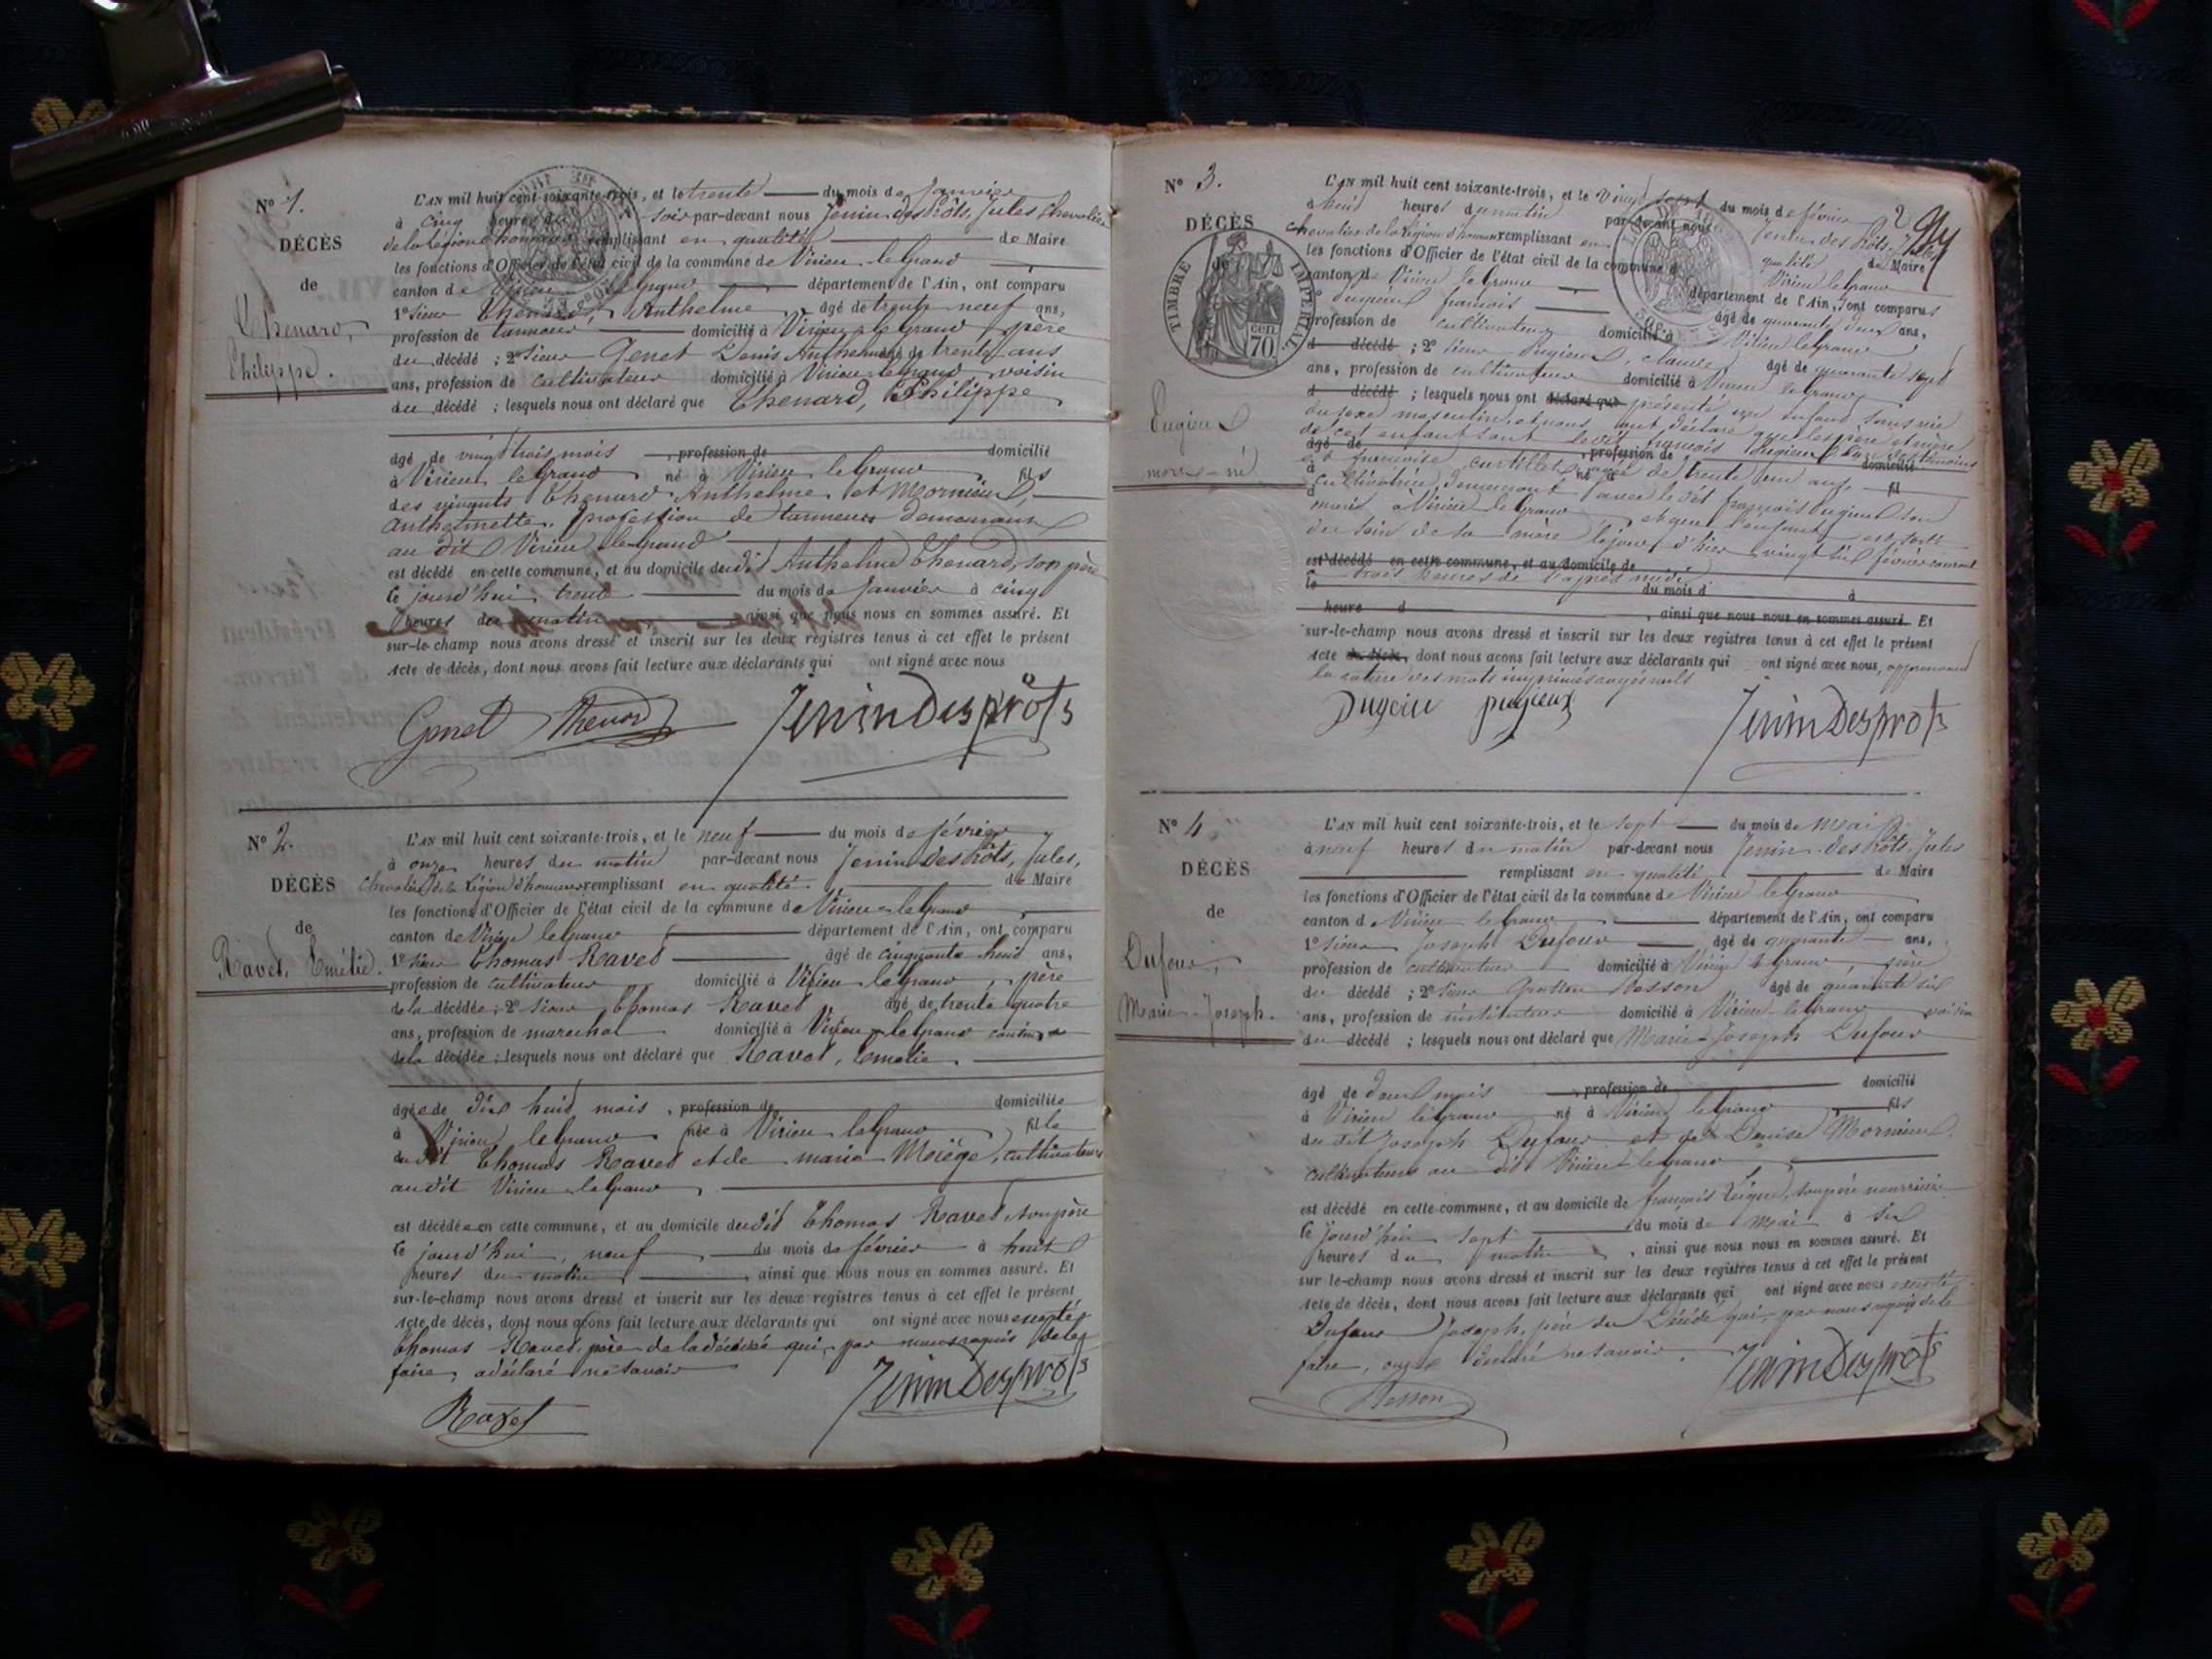 N° 1.
DÉCÈS
de
Thenard,
Philippe.
L'AN mil huit cent soixante-trois, et le trente du mois de Janvier
à cinq heures du soir par-devant nous Jenin-des Prôts, Jules, Chevalier
de la Légion d'honneur remplissant en qualité de Maire
les fonctions d'Officier de l'état civil de la commune de Virieu-le-Grand
canton de Virieu le grand département de l'Ain, ont comparu
1° sieur Thenard, Anthelme, âgé de trente neuf ans,
profession de tanneur domicilié à Virieu-le-Grand, père
du décédé ; 2° sieur Genet Denis Anthelme âgé de trente ans
ans, profession de cultivateur domicilié à Virieu-le-grand, voisin
du décédé ; lesquels nous ont déclaré que Thenard, Philippe
âgé de vingt trois mois, profession de domicilié
à Virieu le Grand né à Virieu le Grand fils
des vivants Thenard Anthelme et Mornieux,
Anthelmette, profession de tanneurs demeurant
au dit Virieu-le-Grand
est décédé en cette commune, et au domicile dudit Anthelme Thenard, son père
le jourd'hui, trente du mois de Janvier à cinq
heures du matin, ainsi que nous nous en sommes assuré. Et
sur-le-champ nous avons dressé et inscrit sur les deux registres tenus à cet effet le présent
acte de décès, dont nous avons fait lecture aux déclarants qui ont signé avec nous
Genet Thenard Jenin Des prôts
N° 2.
DÉCÈS
de
Ravet, Emélie.
L'AN mil huit cent soixante-trois, et le neuf du mois de février
à onze heures du matin par-devant nous Jenin-des Prôts, Jules,
Chevalier de la Légion d'honneur remplissant en qualité de Maire
les fonctions d'Officier de l'état civil de la commune de Virieu-le Grand
canton de Virieu le grand département de l'Ain, ont comparu
1° sieur Thomas Ravet âgé de cinquante huit ans,
profession de cultivateur domicilié à Virieu-le Grand, père
de la décédée ; 2° sieur Thomas Ravet âgé de trente quatre
ans, profession de marechal domicilié à Virieu-le Grand cousin
de la décédée ; lesquels nous ont déclaré que Ravet, Emelie
âgée de dix huit mois, profession de domiciliée
à Virieu le Grand née à Virieu le Grand fille
dudit Thomas Ravet et de marie Meiège, cultivateurs
au dit Virieu-le Grand,
est décédée en cette commune, et au domicile dudit Thomas Ravet, son père
le jourd'hui, neuf du mois de février à huit
heures du matin, ainsi que nous nous en sommes assuré. Et
sur-le-champ nous avons dressé et inscrit sur les deux registres tenus à cet effet le présent
acte de décès, dont nous avons fait lecture aux déclarants qui ont signé avec nous excepté
Thomas Ravet, père de la décédée qui, par nous requis de le
faire, a déclaré ne savoir
Ravet Jenin Des prôts
N° 3.
DÉCÈS
de
TIMBRE IMPÉRIAL
70 cen.
Pugieux
mort-né
L'AN mil huit cent soixante-trois, et le vingt sept du mois de février
à huit heures du matin par-devant nous Jenin des Prôts, Jules
chevalier de la Légion d'honneur remplissant en qualité de Maire
les fonctions d'Officier de l'état civil de la commune de Virieu le Grand
canton de Virieu le Grand département de l'Ain, ont comparu
1° Pugieux françois âgé de quarante deux ans,
profession de cultivateur domicilié à Virieu le Grand
d décédé ; 2° sieur Pugieux, claude, âgé de quarante sept
ans, profession de cultivateur domicilié à Virieu le Grand
d décédé ; lesquels nous ont déclaré que présenté un enfant sans vie
du sexe masculin, et nous ont déclaré que les père et mère
de cet enfant sont ledit françois Pugieux
âgé de profession de domicilié
et françoise âgée de trente un ans,
cultivatrice, demeurant avec ledit françois Pugieux son
mari à Virieu-le-Grand et que l'enfant est sorti
du sein de sa mère le jour d'hier vingt six février courant
est décédé en cette commune, et au domicile de
à trois heures de l'après midi
le du mois d à
heure d , ainsi que nous nous en sommes assuré. Et
sur-le-champ nous avons dressé et inscrit sur les deux registres tenus à cet effet le présent
acte de décès, dont nous avons fait lecture aux déclarants qui ont signé avec nous, approuvant
la rature des mots imprimés rayés nuls
Pugieux pugieux Jenin Des prots
N° 4
DÉCÈS
de
Dufour,
Marie-Joseph.
L'AN mil huit cent soixante-trois, et le sept du mois de Mai
à neuf heures du matin par-devant nous Jenin-des Prôts, Jules
remplissant en qualité de Maire
les fonctions d'Officier de l'état civil de la commune de Virieu le Grand
canton de Virieu-le Grand département de l'Ain, ont comparu
1° sieur Joseph Dufour âgé de quarante ans,
profession de cultivateur domicilié à Virieu le Grand, père
du décédé ; 2° sieur Besson âgé de quarante six
ans, profession de instituteur domicilié à Virieu-le Grand voisin
du décédé ; lesquels nous ont déclaré que Marie-Joseph Dufour
âgé de deux mois, profession de domicilié
à Virieu le Grand né à Virieu le Grand fils
du dit Joseph Dufour et de Denise Mornieux
cultivateurs au dit Virieu-le Grand
est décédé en cette commune, et au domicile de françois, son père nourricier
le jourd'hui sept du mois de Mai à six
heures du matin, ainsi que nous nous en sommes assuré. Et
sur le-champ nous avons dressé et inscrit sur les deux registres tenus à cet effet le présent
acte de décès, dont nous avons fait lecture aux déclarants qui ont signé avec nous excepté
Dufour Joseph, père du Décédé qui, par nous requis de le
faire, déclaré ne savoir.
Besson Jenin Des prôts